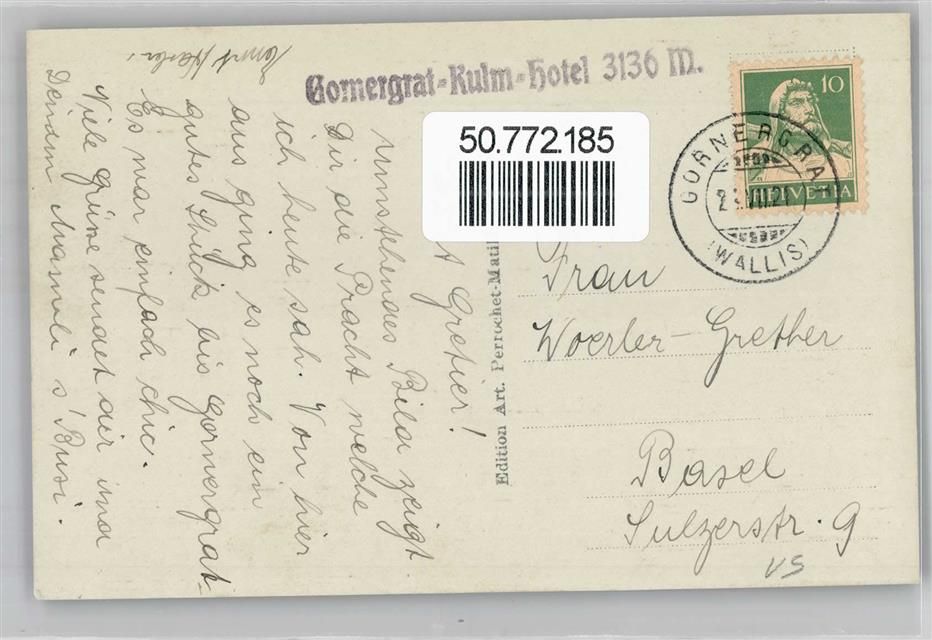 Gornergrat-Kulm-Hotel 3136 M.
50.772.185
10
HELVETIA
GORNERGRA
(WALLIS)
Gretier!
umstehendes Bild zeigt
Dir die Pracht welche
ich heute sah. Von hier
aus ging es noch ein
gutes Stück bis Gornergrat-
Es war einfach chic.
Viele Grüsse sendet dir und
Deinem Mammeli s' Busi.
Edition Art. Perrochet-Matil
Frau
Woerler-Grether
Basel
Sulzerstr. 9
VS